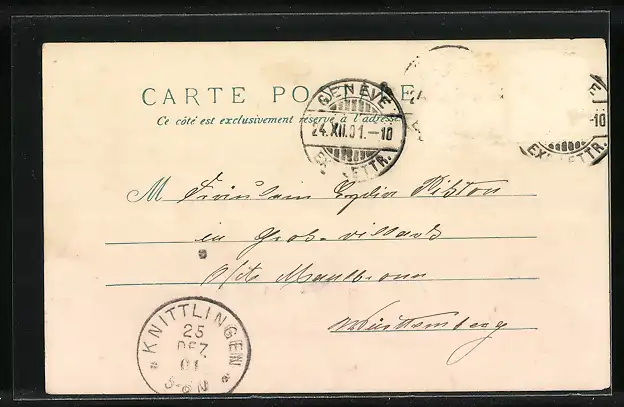 CARTE POSTALE
Ce côté est exclusivement réservé à l'adresse
GENÈVE
24.XII.01.-10
EXP. LETTR.
-10
EXP. LETTR.
M Fräulein Lydia Pistor
in Groß-villars
O/A Maulbronn
Württemberg
KNITTLINGEN
25
DEZ.
01